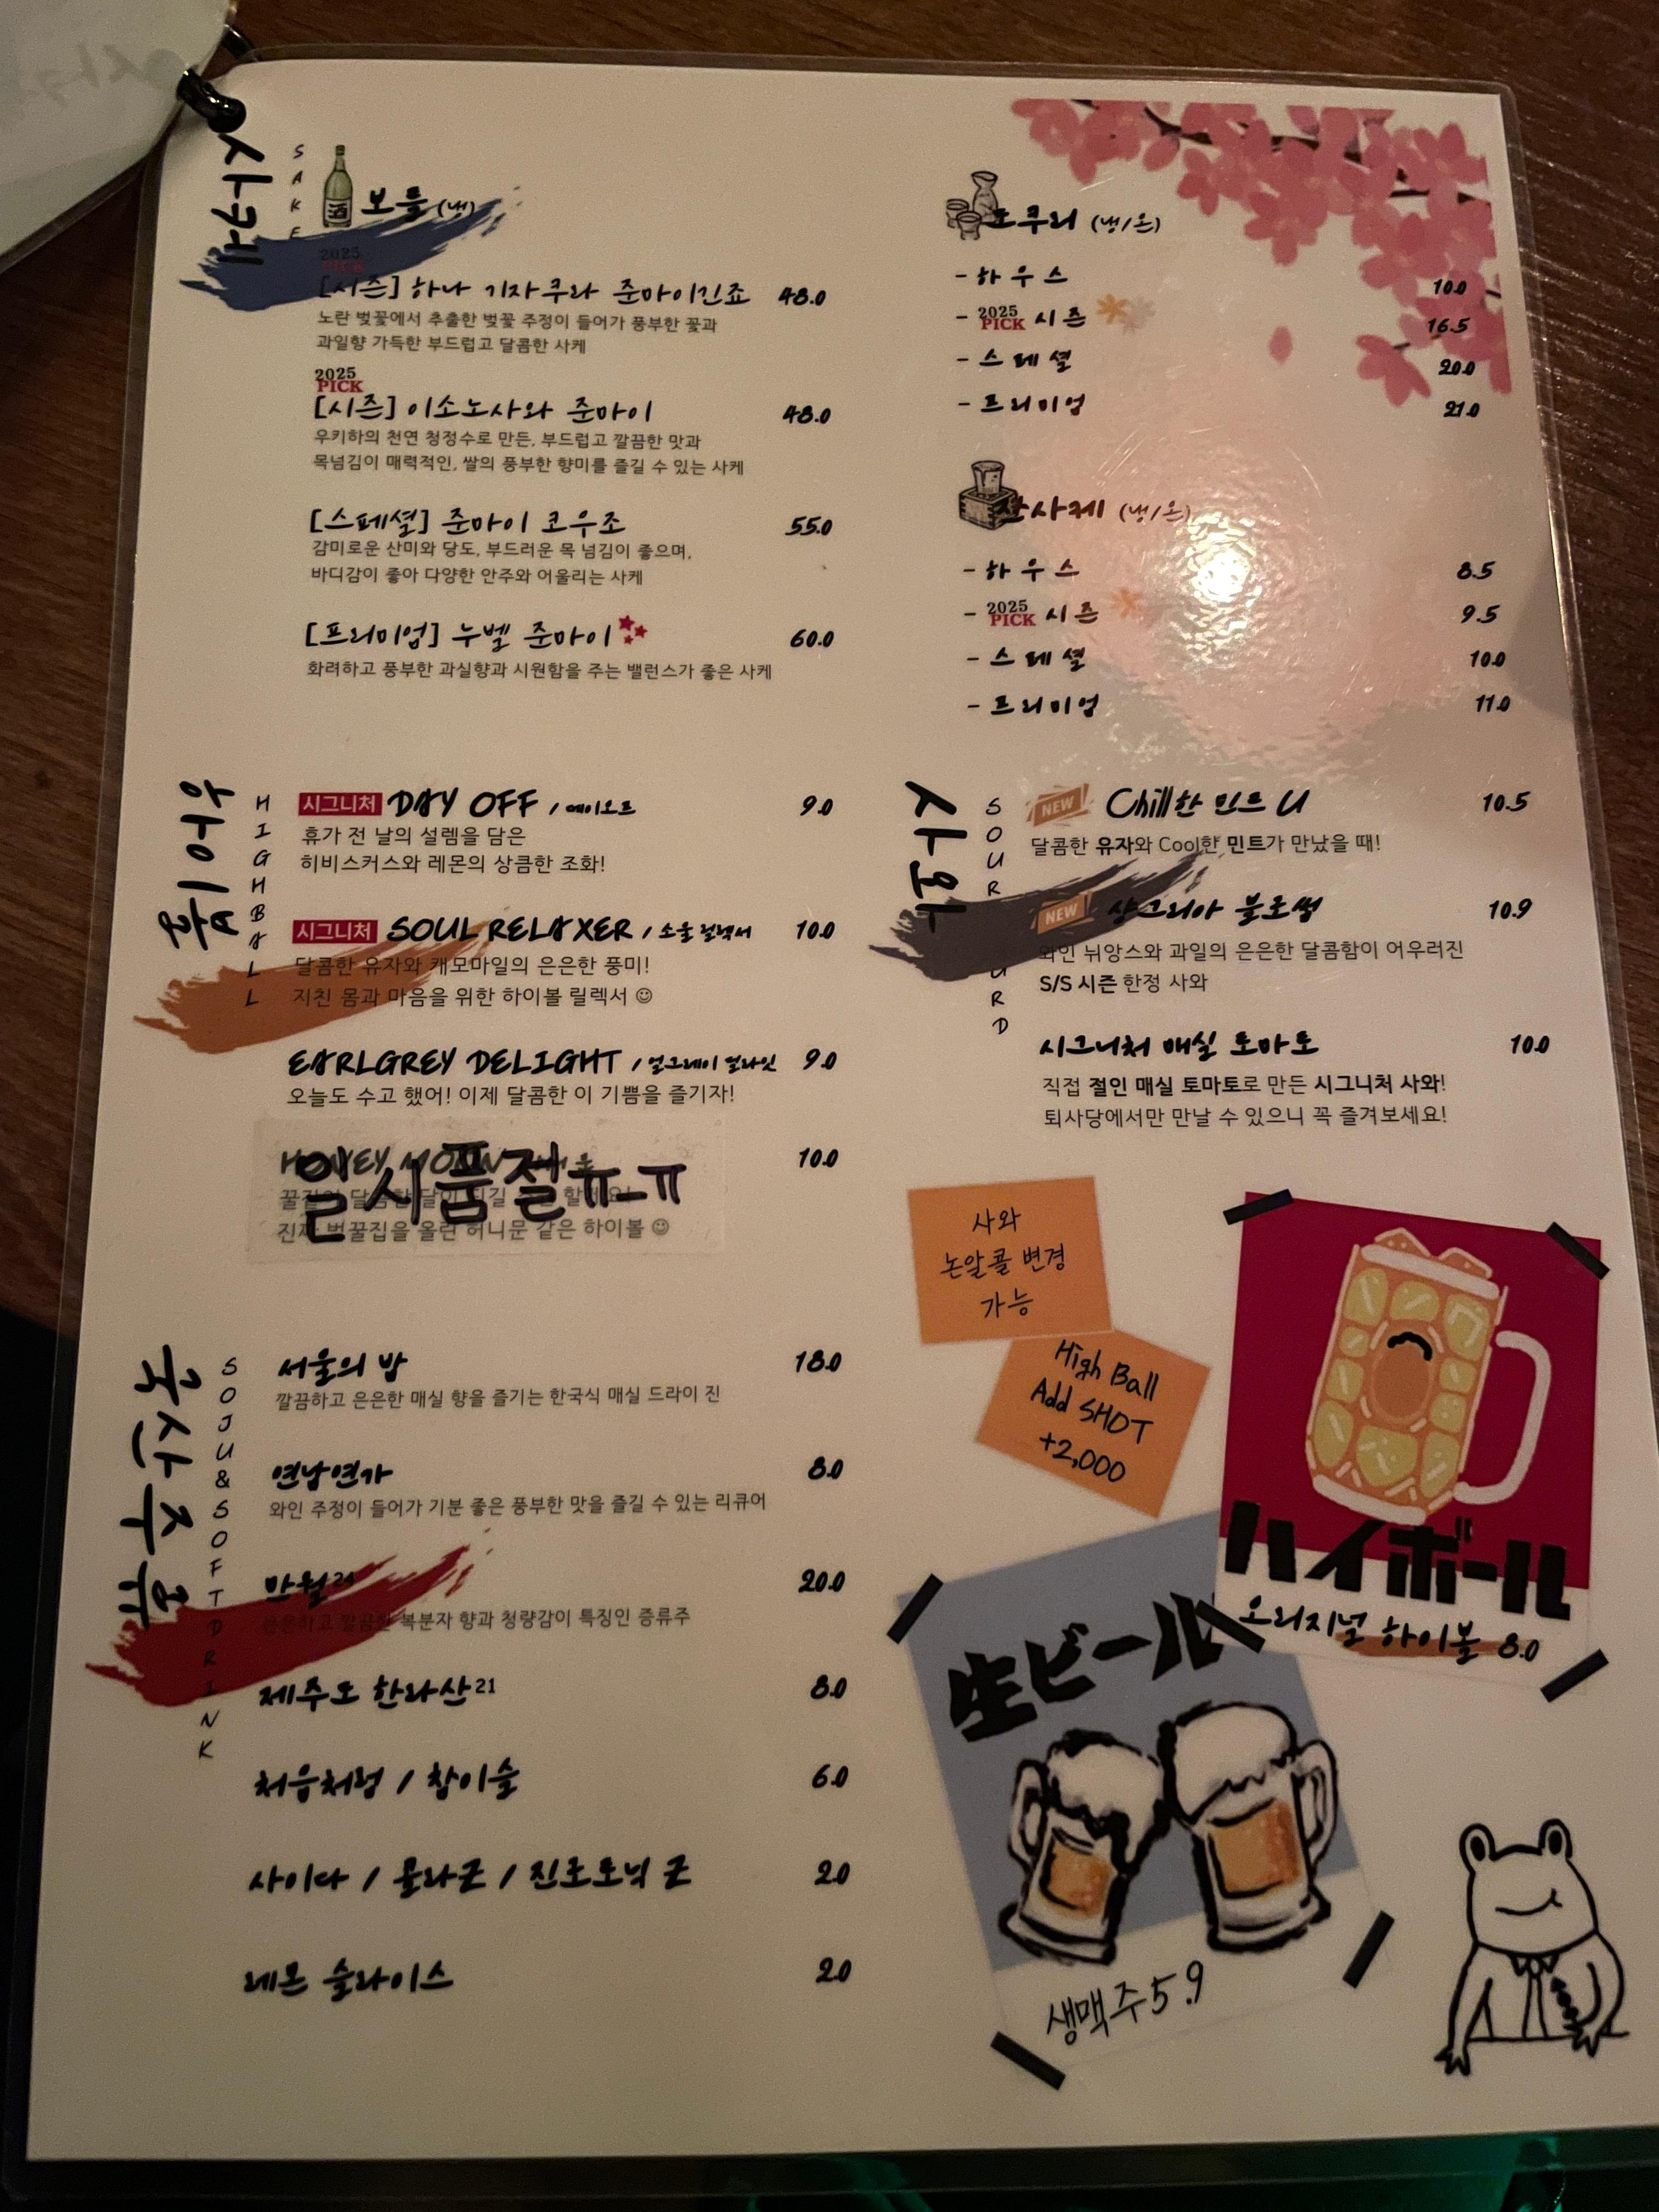 사케
SAKE
酒
보틀 (냉)
2025
PICK
[시즌] 하나 기자쿠라 준마이긴죠 48.0
노란 벚꽃에서 추출한 벚꽃 주정이 들어가 풍부한 꽃과
과일향 가득한 부드럽고 달콤한 사케
2025
PICK
[시즌] 이소노사와 준마이 48.0
우키하의 천연 청정수로 만든, 부드럽고 깔끔한 맛과
목넘김이 매력적인, 쌀의 풍부한 향미를 즐길 수 있는 사케
[스페셜] 준마이 코우조 55.0
감미로운 산미와 당도, 부드러운 목 넘김이 좋으며,
바디감이 좋아 다양한 안주와 어울리는 사케
[프리미엄] 누벨 준마이 60.0
화려하고 풍부한 과실향과 시원함을 주는 밸런스가 좋은 사케
도쿠리 (냉/온)
- 하우스 10.0
- 2025 PICK 시즌 16.5
- 스페셜 20.0
- 프리미엄 21.0
잔사케 (냉/온)
- 하우스 8.5
- 2025 PICK 시즌 9.5
- 스페셜 10.0
- 프리미엄 11.0
하이볼
HIGHBALL
시그니처 DAY OFF / 데이오프 9.0
휴가 전 날의 설렘을 담은
히비스커스와 레몬의 상큼한 조화!
시그니처 SOUL RELAXER / 소울 릴렉서 10.0
달콤한 유자와 캐모마일의 은은한 풍미!
지친 몸과 마음을 위한 하이볼 릴렉서 ☺
EARLGREY DELIGHT / 얼그레이 딜라잇 9.0
오늘도 수고 했어! 이제 달콤한 이 기쁨을 즐기자!
HONEY MOON 10.0
일시품절ㅠ_ㅠ
진짜 벌꿀집을 올린 허니문 같은 하이볼 ☺
사와
SOUR
NEW Chill한 민트 U 10.5
달콤한 유자와 Cool한 민트가 만났을 때!
NEW 상그리아 블로썸 10.9
와인 뉘앙스와 과일의 은은한 달콤함이 어우러진
S/S 시즌 한정 사와
시그니처 매실 토마토 10.0
직접 절인 매실 토마토로 만든 시그니처 사와!
퇴사당에서만 만날 수 있으니 꼭 즐겨보세요!
사와
논알콜 변경
가능
High Ball
Add SHOT
+2,000
ハイボール
오리지널 하이볼 8.0
生ビール
생맥주 5.9
국산주류
SOJU&SOFTDRINK
서울의 밤 18.0
깔끔하고 은은한 매실 향을 즐기는 한국식 매실 드라이 진
연남연가 8.0
와인 주정이 들어가 기분 좋은 풍부한 맛을 즐길 수 있는 리큐어
만월24 20.0
은은하고 깔끔한 복분자 향과 청량감이 특징인 증류주
제주도 한라산21 8.0
처음처럼 / 참이슬 6.0
사이다 / 콜라ZERO / 진로토닉 Z 2.0
레몬 슬라이스 2.0